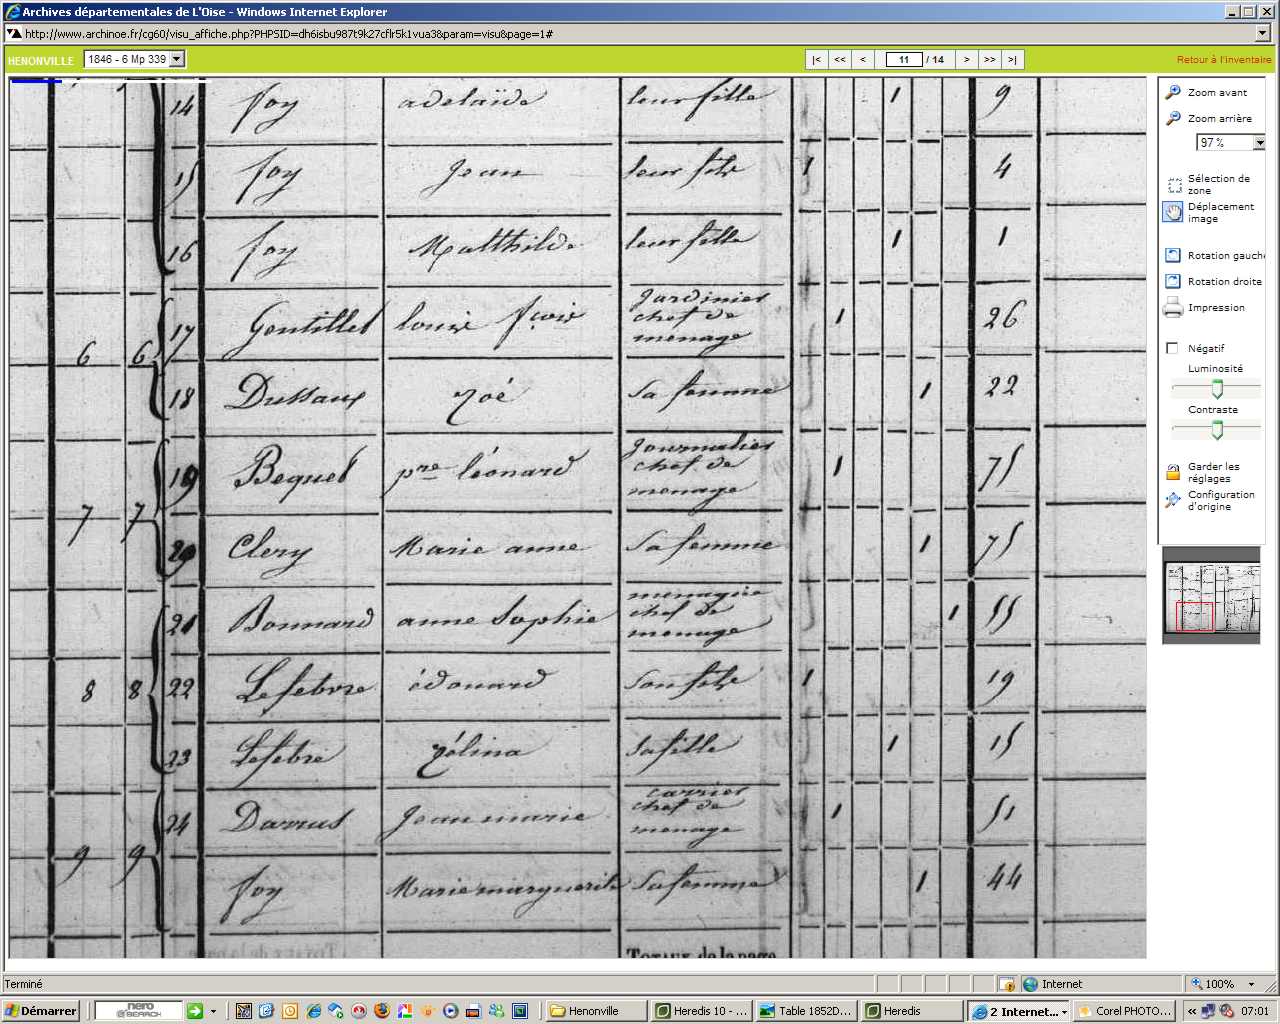 Archives départementales de L'Oise - Windows Internet Explorer
http://www.archinoe.fr/cg60/visu_affiche.php?PHPSID=dh6isbu987t9k27cflr5k1vua3&param=visu&page=1#
HENONVILLE 1846 - 6 Mp 339 |< << < 11 / 14 > >> >| Retour à l'inventaire
14 foy adelaïde leur fille 1 9
15 foy Jean leur fils 1 4
16 foy Matthilde leur fille 1 1
6 6 17 Gentillet louis fçois jardinier
chef de
menage 1 26
18 Dussaux zoé sa femme 1 22
7 7 19 Bequet pre léonard journalier
chef de
menage 1 75
20 Clery Marie anne sa femme 1 75
8 8 21 Bonnard anne Sophie
chef de
menage 1 55
22 Lefebvre édouard son fils 1 19
23 Lefebre zélina sa fille 1 15
9 9 24 Darras Jean marie carrier
chef de
menage 1 51
foy Marie marguerite sa femme 1 44
Totaux de la page
Zoom avant
Zoom arrière
97 %
Sélection de
zone
Déplacement
image
Rotation gauche
Rotation droite
Impression
Négatif
Luminosité
Contraste
Garder les
réglages
Configuration
d'origine
Terminé Internet 100%
Démarrer nero SEARCH Henonville Heredis 10 - ... Table 1852D... Heredis 2 Internet... Corel PHOTO... 07:01